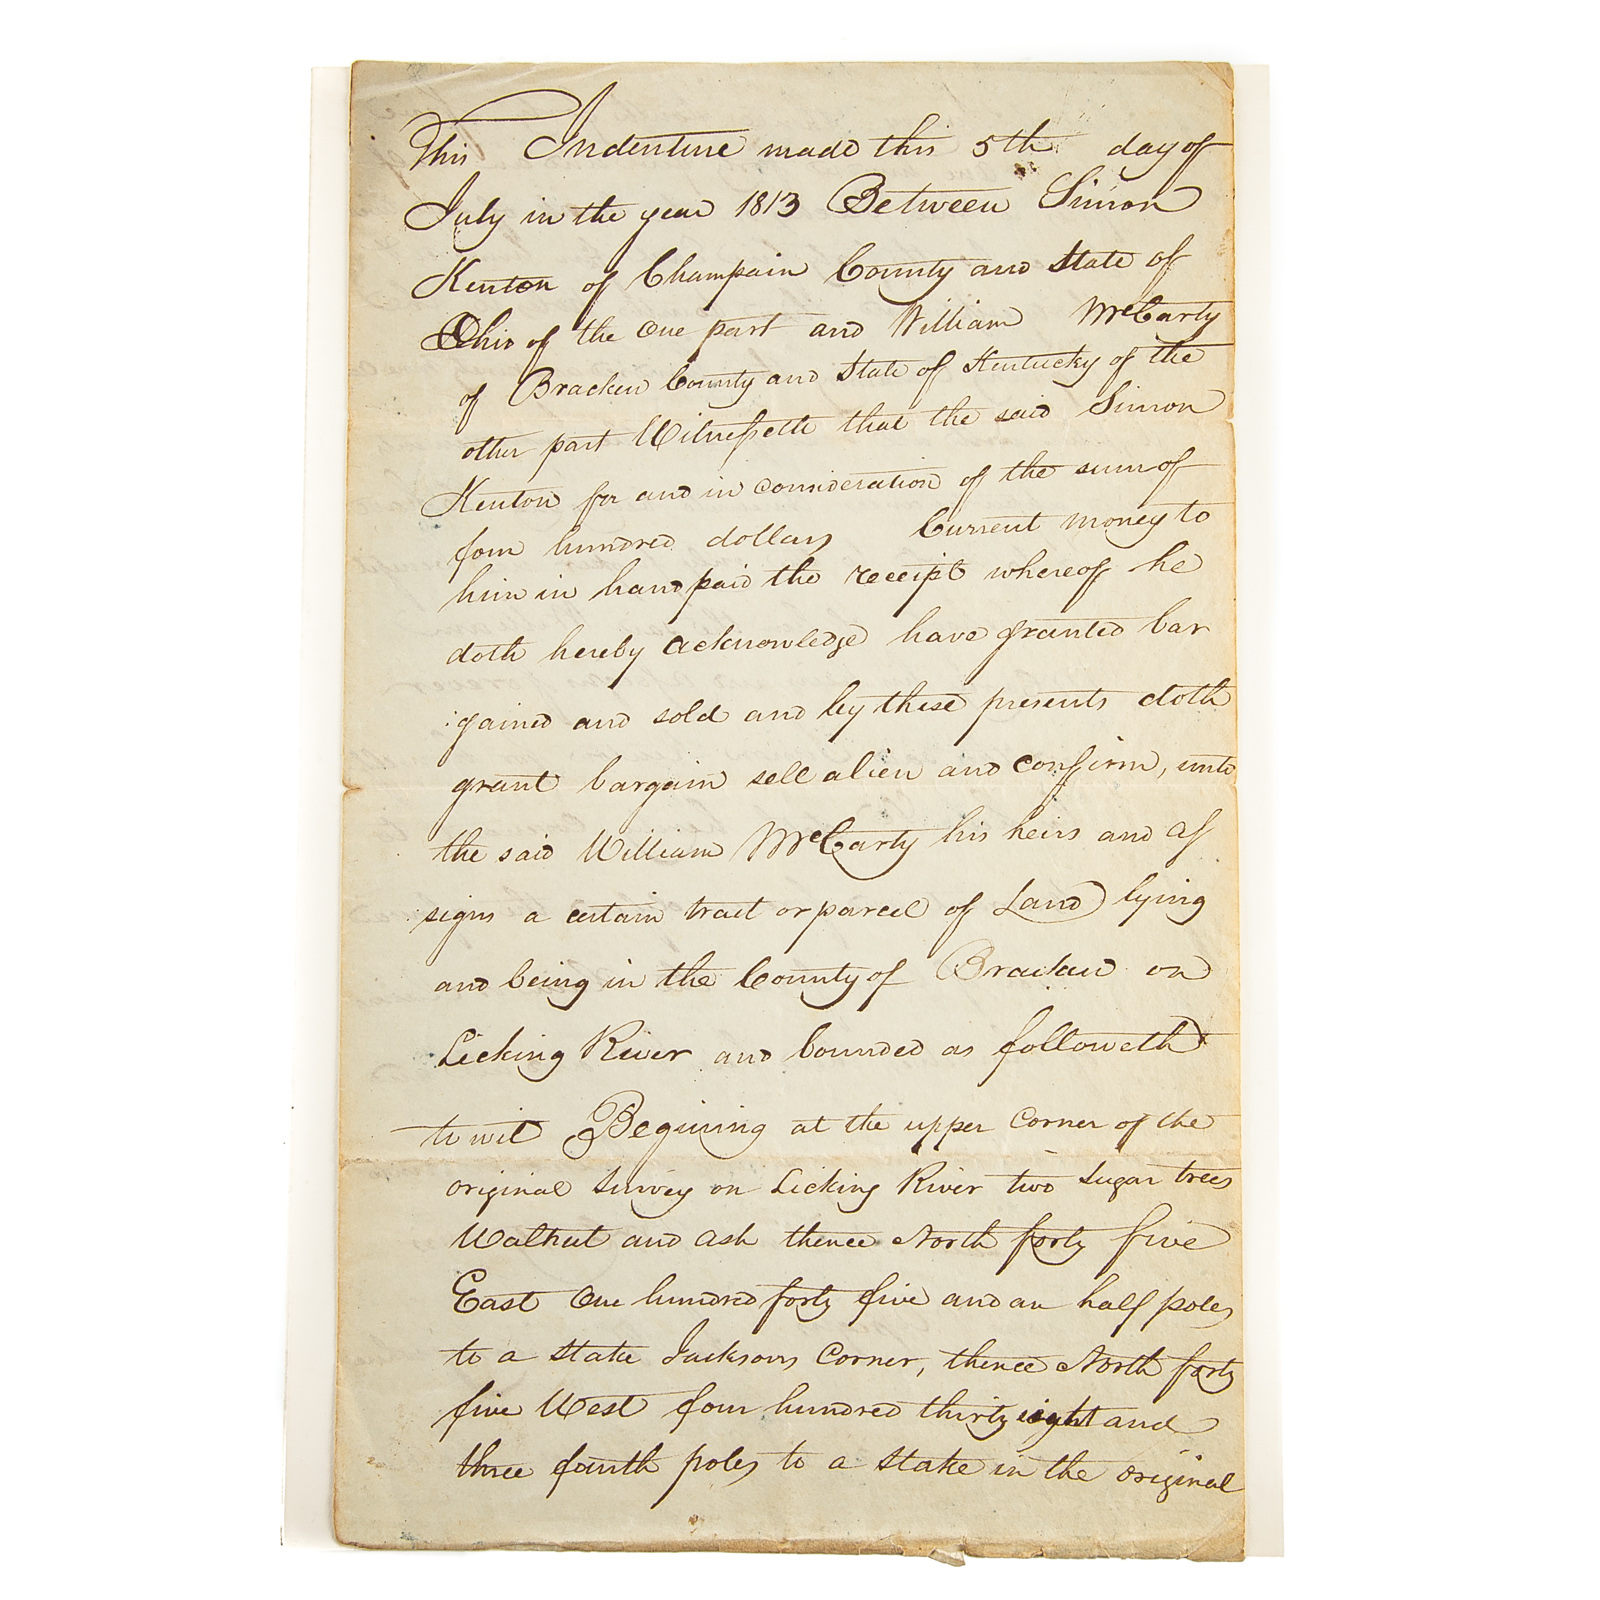 This Indenture made this 5th day of
July in the year 1813 Between Simon
Kenton of Champain County and State of
Ohio of the one part and William McCarty
of Bracken County and State of Kentucky of the
other part Witnesseth that the said Simon
Kenton for and in consideration of the sum of
four hundred dollars Current money to
him in hand paid the receipt whereof he
doth hereby acknowledge have granted bar
:gained and sold and by these presents doth
grant bargain sell alien and confirm, unto
the said William McCarty his heirs and as
signs a certain tract or parcel of Land lying
and being in the County of Bracken on
Licking River and bounded as followeth
to wit Begining at the upper Corner of the
original Survey on Licking River two sugar trees
Walnut and ash thence North forty five
East One hundred forty five and an half poles
to a stake Jacksons Corner, thence North forty
five West four hundred thirty eight and
three fourth poles to a stake in the original